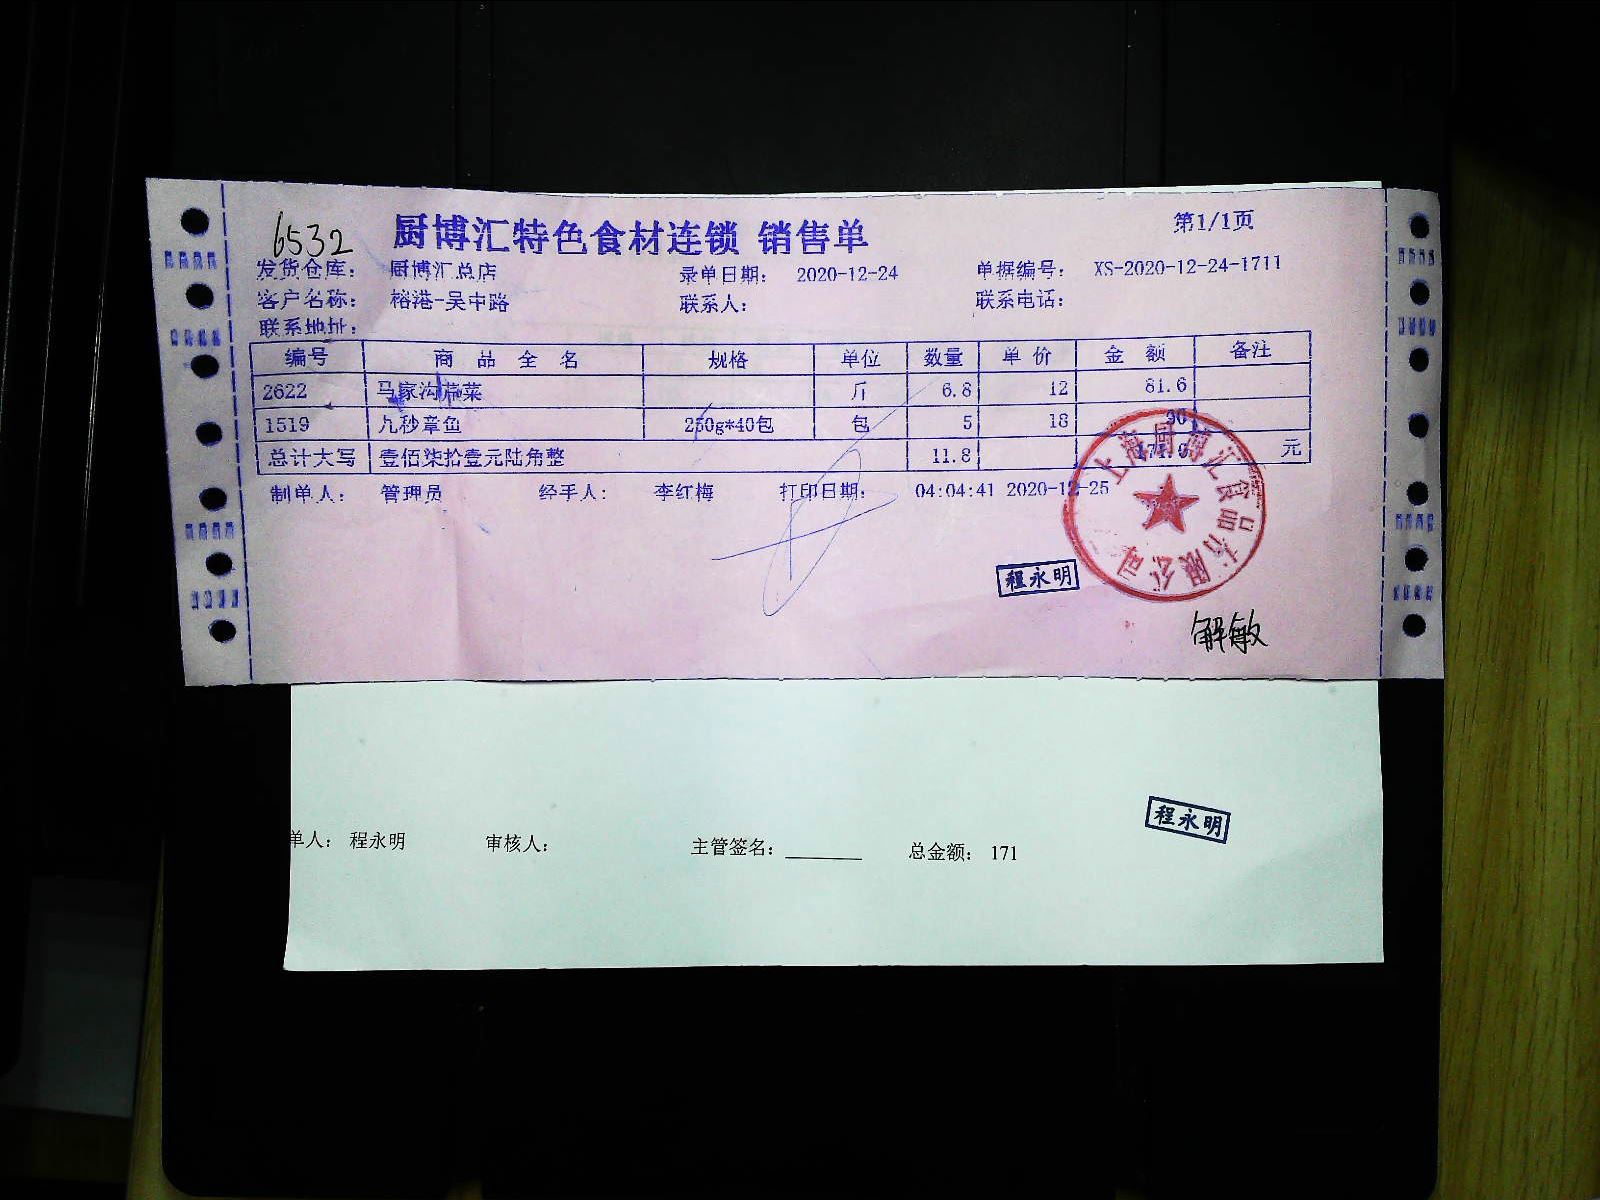 6532 厨博汇特色食材连锁 销售单 第1/1页
发货仓库： 厨博汇总店 录单日期： 2020-12-24 单据编号： XS-2020-12-24-1711
客户名称： 榕港-吴中路 联系人： 联系电话：
联系地址：
编号 商 品 全 名 规格 单位 数量 单 价 金 额 备注
2622 马家沟芹菜 斤 6.8 12 81.6
1519 九秒章鱼 250g*40包 包 5 18 90
总计大写 壹佰柒拾壹元陆角整 11.8 171.6 元
制单人： 管理员 经手人： 李红梅 打印日期： 04:04:41 2020-12-25
上海厨博汇食品有限公司
程永明
解敏
程永明
单人： 程永明 审核人： 主管签名： 总金额： 171